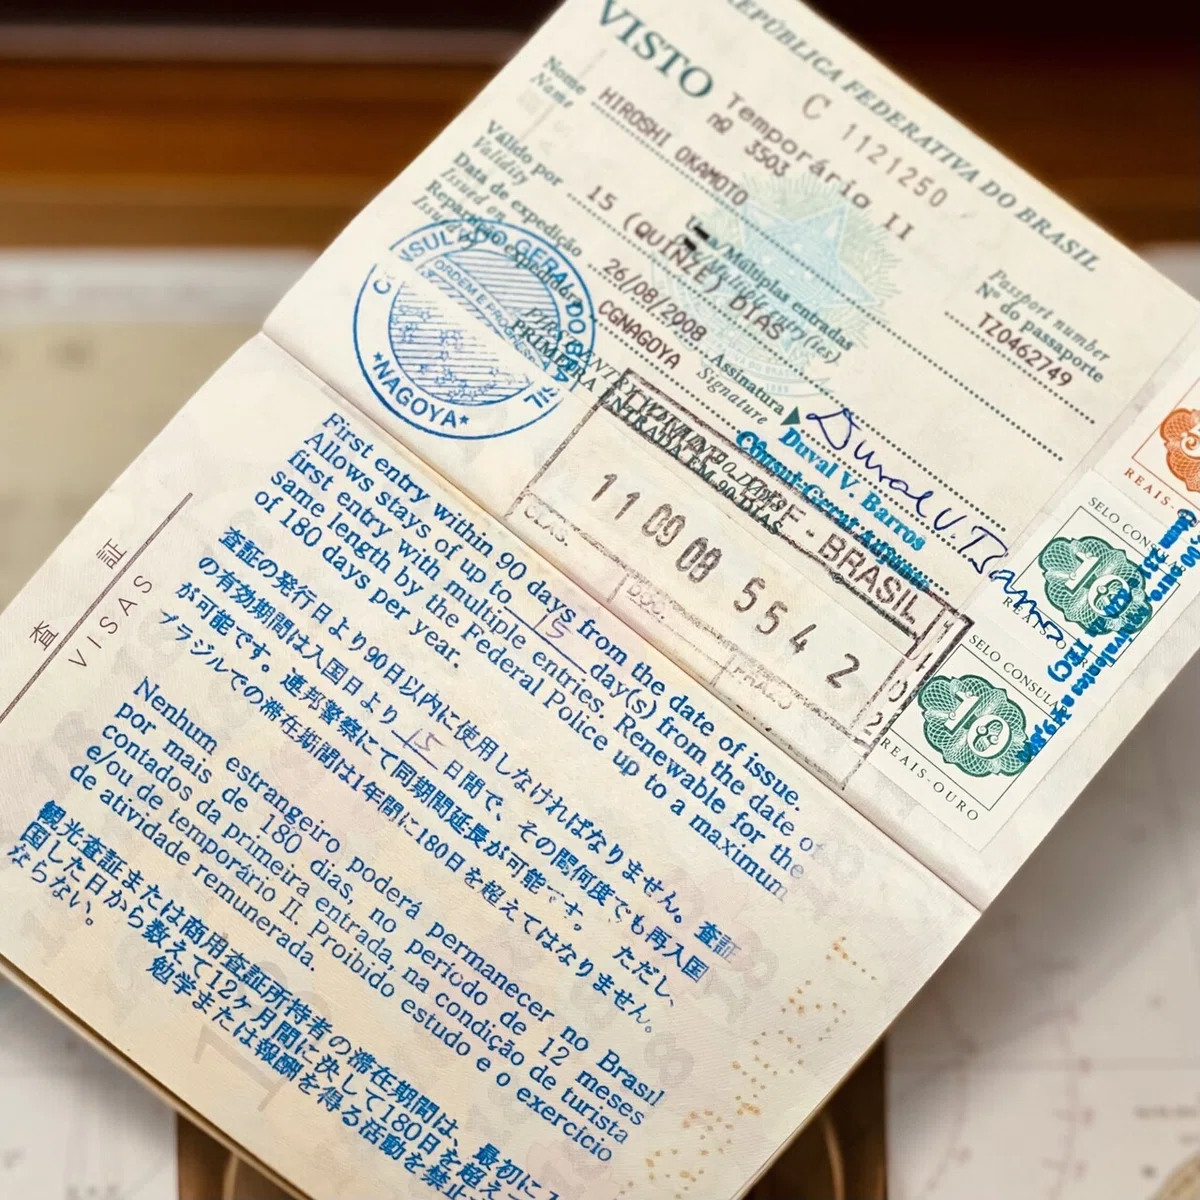 REPÚBLICA FEDERATIVA DO BRASIL
VISTO
C 1121250
Temporário II
nº 3503
Nome
Name
HIROSHI OKAMOTO
Passport number
Nº do passaporte
TZ0462749
Válido por
Validity
15 (QUINZE) DIAS
Múltiplas entradas
Data de expedição
Issued on
26/08/2008
Repartição expedidora
CGNAGOYA
Assinatura
Signature
Duval V. Barros
Cônsul-Geral
CONSULADO GERAL DO BRASIL
ORDEM E PROGRESSO
*NAGOYA*
PRIMEIRA
ENTRADA EM 90 DIAS
- BRASIL
11 09 08 5542
CLAS.
PRAZO
REAIS-
SELO CONSU
10
SELO CONSULA
10
REAIS-OURO
査証
VISAS
First entry within 90 days from the date of issue.
Allows stays of up to 15 day(s) from the date of
first entry with multiple entries. Renewable for the
same length by the Federal Police up to a maximum
of 180 days per year.
査証の発行日より90日以内に使用しなければなりません。査証
の有効期間は入国日より 15 日間で、その間何度でも再入国
が可能です。連邦警察にて同期間延長が可能です。ただし、
ブラジルでの滞在期間は1年間に180日を超えてはなりません。
Nenhum estrangeiro poderá permanecer no Brasil
por mais de 180 dias, no período de 12 meses
contados da primeira entrada, na condição de turista
e/ou de temporário II. Proibido estudo e o exercício
de atividade remunerada.
観光査証または商用査証所持者の滞在期間は、最初に入
国した日から数えて12ヶ月間に決して180日を超え
勉学または報酬を得る活動を禁止
ならない。